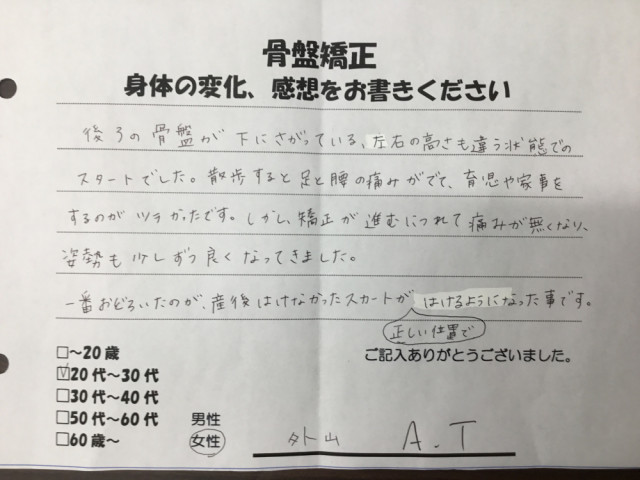 骨盤矯正
身体の変化、感想をお書きください
後ろの骨盤が下にさがっている、左右の高さも違う状態での
スタートでした。散歩すると足と腰の痛みがでて、育児や家事を
するのがツラかったです。しかし、矯正が進むにつれて痛みが無くなり、
姿勢も少しずつ良くなってきました。
一番おどろいたのが、産後はけなかったスカートが はけるようになった事です。
正しい位置で
ご記入ありがとうございました。
□~20歳
☑20代~30代
□30代~40代
□50代~60代 男性
□60歳~ 女性
外山 A.T